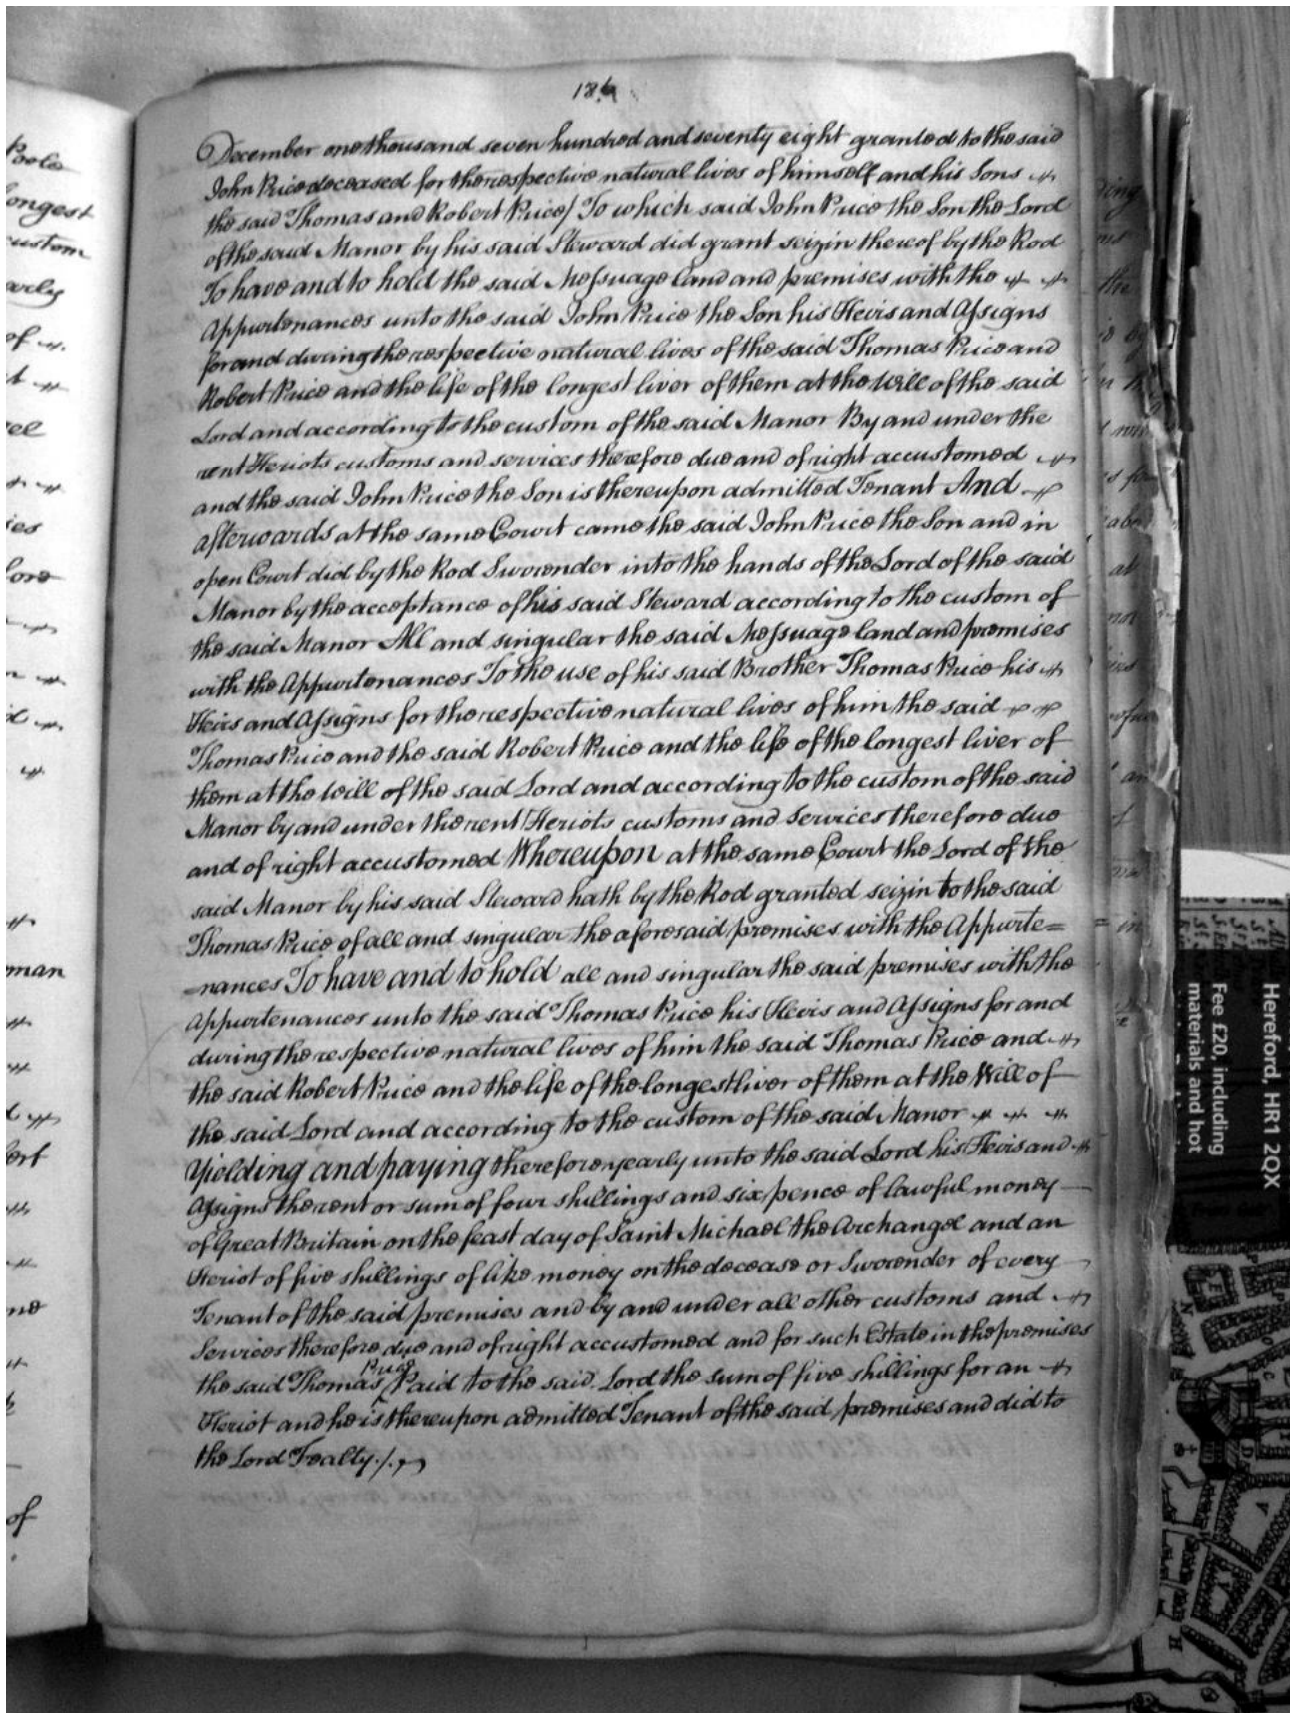 186
December one thousand seven hundred and seventy eight granted to the said
John Price deceased for the respective natural lives of himself and his Sons
the said Thomas and Robert Price/ To which said John Price the Son the Lord
of the said Manor by his said Steward did grant seizin thereof by the Rod
To have and to hold the said Messuage land and premises with the
Appurtenances unto the said John Price the Son his Heirs and Assigns
for and during the respective natural lives of the said Thomas Price and
Robert Price and the life of the longest liver of them at the Will of the said
Lord and according to the custom of the said Manor By and under the
rent Heriots customs and services therefore due and of right accustomed
and the said John Price the Son is thereupon admitted Tenant And
afterwards at the same Court came the said John Price the Son and in
open Court did by the Rod Surrender into the hands of the Lord of the said
Manor by the acceptance of his said Steward according to the custom of
the said Manor All and singular the said Messuage land and premises
with the Appurtenances To the use of his said Brother Thomas Price his
Heirs and Assigns for the respective natural lives of him the said
Thomas Price and the said Robert Price and the life of the longest liver of
them at the Will of the said Lord and according to the custom of the said
Manor by and under the rent Heriots customs and Services therefore due
and of right accustomed Whereupon at the same Court the Lord of the
said Manor by his said Steward hath by the Rod granted seizin to the said
Thomas Price of all and singular the aforesaid premises with the Appurte=
=nances To have and to hold all and singular the said premises with the
Appurtenances unto the said Thomas Price his Heirs and Assigns for and
during the respective natural lives of him the said Thomas Price and
the said Robert Price and the life of the longest liver of them at the Will of
the said Lord and according to the custom of the said Manor
Yielding and paying therefore yearly unto the said Lord his Heirs and
Assigns the rent or sum of four shillings and six pence of lawful money
of Great Britain on the feast day of Saint Michael the Archangel and an
Heriot of five shillings of like money on the decease or Surrender of every
Tenant of the said premises and by and under all other customs and
Services therefore due and of right accustomed and for such Estate in the premises
the said Thomas Price Paid to the said Lord the sum of five shillings for an
Heriot and he is thereupon admitted Tenant of the said premises and did to
the Lord Fealty./.
Poole
longest
custom
arly
of
man
of
Hereford, HR1 2QX
Fee £20, including
materials and hot